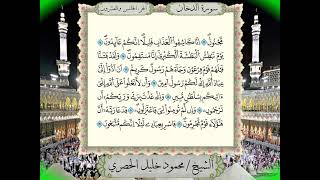 سورة الدخان
الجزء الخامس والعشرون
مَّجْنُونٌ إِنَّا كَاشِفُوا الْعَذَابِ قَلِيلًا إِنَّكُمْ عَائِدُونَ
يَوْمَ نَبْطِشُ الْبَطْشَةَ الْكُبْرَىٰ إِنَّا مُنتَقِمُونَ وَلَقَدْ فَتَنَّا
قَبْلَهُمْ قَوْمَ فِرْعَوْنَ وَجَاءَهُمْ رَسُولٌ كَرِيمٌ أَنْ أَدُّوا إِلَيَّ
عِبَادَ اللَّهِ إِنِّي لَكُمْ رَسُولٌ أَمِينٌ وَأَن لَّا تَعْلُوا عَلَى اللَّهِ إِنِّي
آتِيكُم بِسُلْطَانٍ مُّبِينٍ وَإِنِّي عُذْتُ بِرَبِّي وَرَبِّكُمْ أَن
تَرْجُمُونِ وَإِن لَّمْ تُؤْمِنُوا لِي فَاعْتَزِلُونِ فَدَعَا رَبَّهُ أَنَّ
هَٰؤُلَاءِ قَوْمٌ مُّجْرِمُونَ فَأَسْرِ بِعِبَادِي لَيْلًا إِنَّكُم مُّتَّبَعُونَ
الشيخ / محمود خليل الحصري